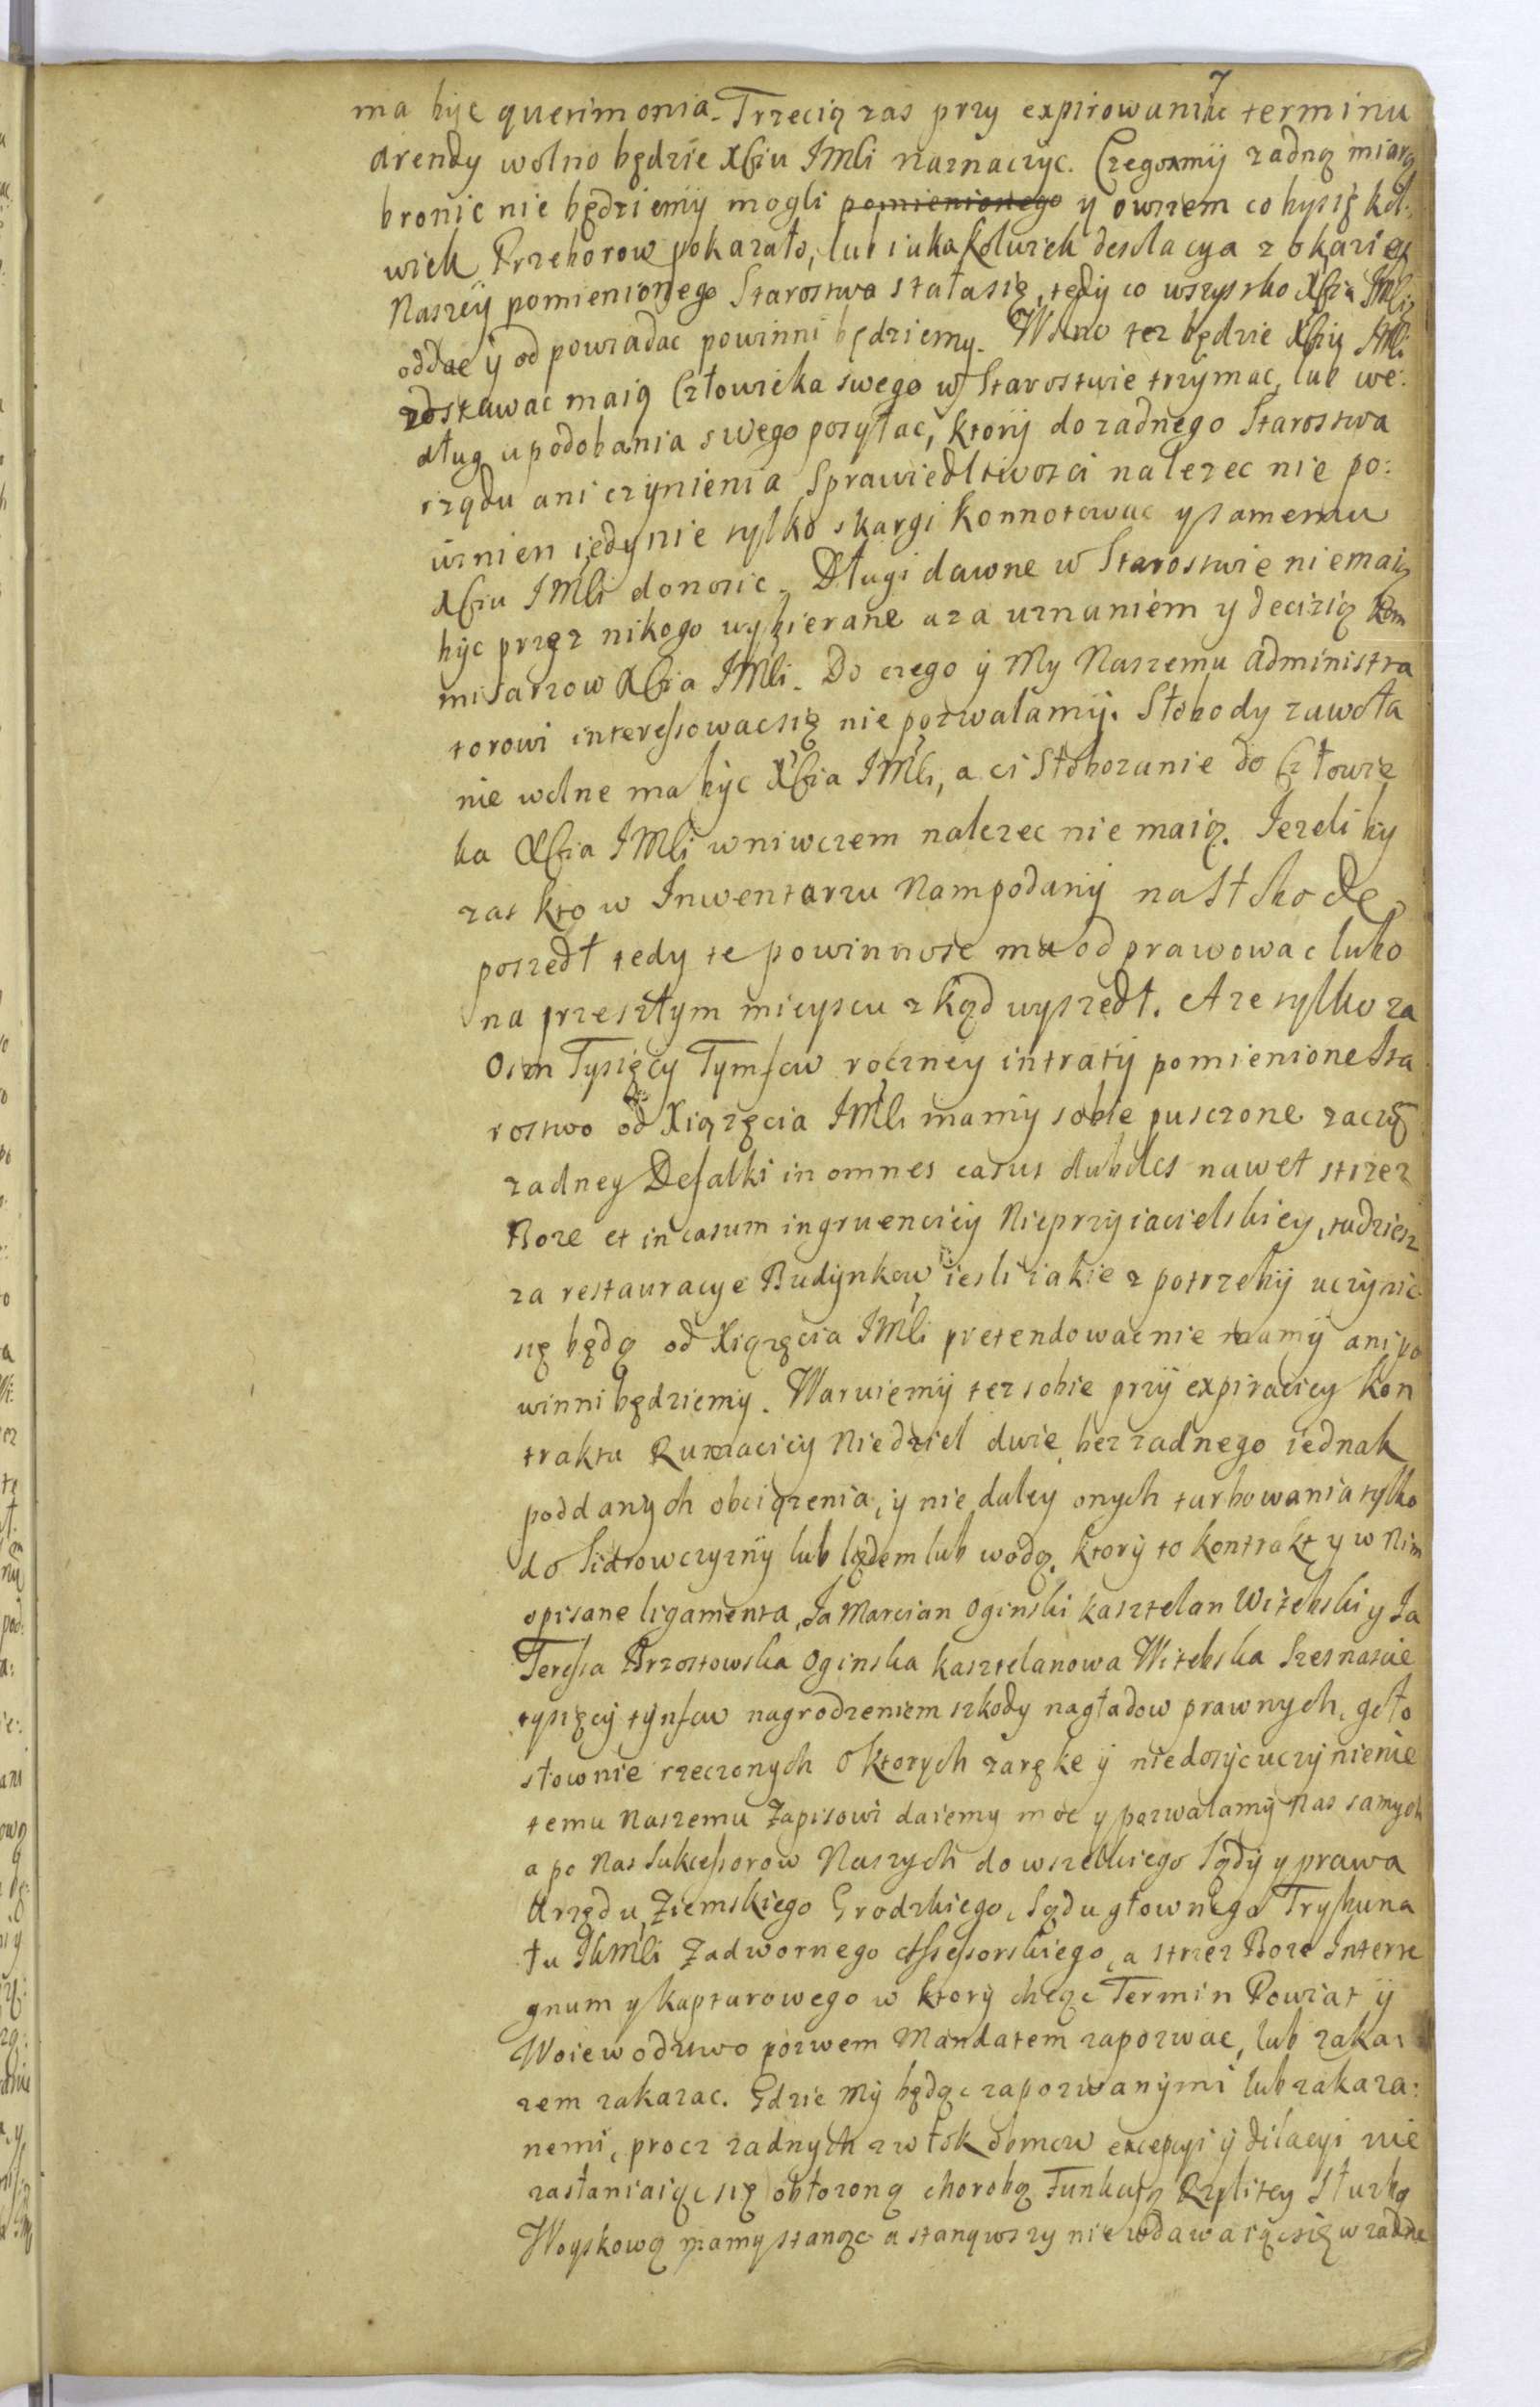 7
ma byc querimonia. Trzecią zas przy expirowaniu terminu
arendy wolno będzie Xsiu JMsci naznaczyc. Czego my zadną miarą
bronic nie będziemy mogli pomienionego y owszem co by się kol:
wiek Przeborow pokazało, lub iaka kolwiek desolacya z okaziey
Naszey pomienionego Starostwa stała się, tedy to wszystko Xsia JMsci
oddac y odpowiadac powinni będziemy. Wolno tez będzie Xsiu JMsci
zostawac maią Człowieka swego w Starostwie trzymac, lub we:
dług upodobania swego posyłac, ktory do zadnego Starostwa
rządu ani czynienia Sprawiedliwosci nalezec nie po:
winien iedynie tylko skargi konnotowac y samemu
Xsiu JMsci donosic. Długi dawne w Starostwie nie maią
byc przez nikogo wybierane aza uznaniem y decizią kom
misarzow Xsia JMsci. Do czego y My Naszemu Administra
torowi interessowac się nie pozwalamy. Słobody zawoła
nie wolne ma byc Xsia JMsci, a ci Słobozanie do Człowie
ka Xsia JMsci w niwczem nalezec nie maią. Jezeli by
zas kto w Inwentarzu Nam podany na Słobode
poszedł tedy te powinnosc ma odprawowac lubo
na przeszłym mieyscu zkąd wyszedł. A ze tylko za
Osm Tysięcy Tymfow roczney intraty pomienione Sta
rostwo od Xiązęcia JMsci mamy sobie pusczone zaczym
zadney Defalki in omnes casus dubios nawet strzez
Boze et in casum ingruenciey Nieprzyiacielskiey, tudziesz
za restauracye Budynkow iesli iakie z potrzeby uczynic
się będą od Xiązęcia JMsci pretendowac nie mamy ani po
winni będziemy. Waruiemy tez sobie przy expiraciey kon
traktu Rumaciey Niedziel dwie bez zadnego iednak
poddanych obciązenia, y nie daley onych turbowania tylko
do Sidrowczyzny lub lądem lub wodą. ktory to kontrakt y w Nim
opisane ligamenta, Ja Marcian Oginski kasztelan Witebski y Ja
Teressa Brzostowska Oginska kasztelanowa Witebska Szesnascie
tysięcy tynfow nagrodzeniem szkody nagładow prawnych, goło
słownie rzeczonych o ktorych zarękę y niedosyc uczynienie
temu Naszemu Zapisowi daiemy moc y pozwalamy Nas samych
a po Nas Sukcessorow Naszych do wszelkiego Sądy y prawa
Urzędu, Ziemskiego Grodzkiego, Sądu głownego Trybuna
łu JkMsci Zadwornego Assessorskiego, a strzez Boze Interre
gnum y kapturowego w ktory chcąc Termin Powiat y
Woiewodztwo pozwem Mandatem zapozwac, lub zaka:
zem zakazac. Gdzie My będąc zapozwanymi lub zakaza:
nemi, procz zadnych zwłok obmow excepcyi y dilacyi nie
zasłaniaiąc się obłozoną chorobą Funkcyą Rzplitey Słuzbą
Woyskową mamy stanąc a stanąwszy nie wdawaiąc się w zadne